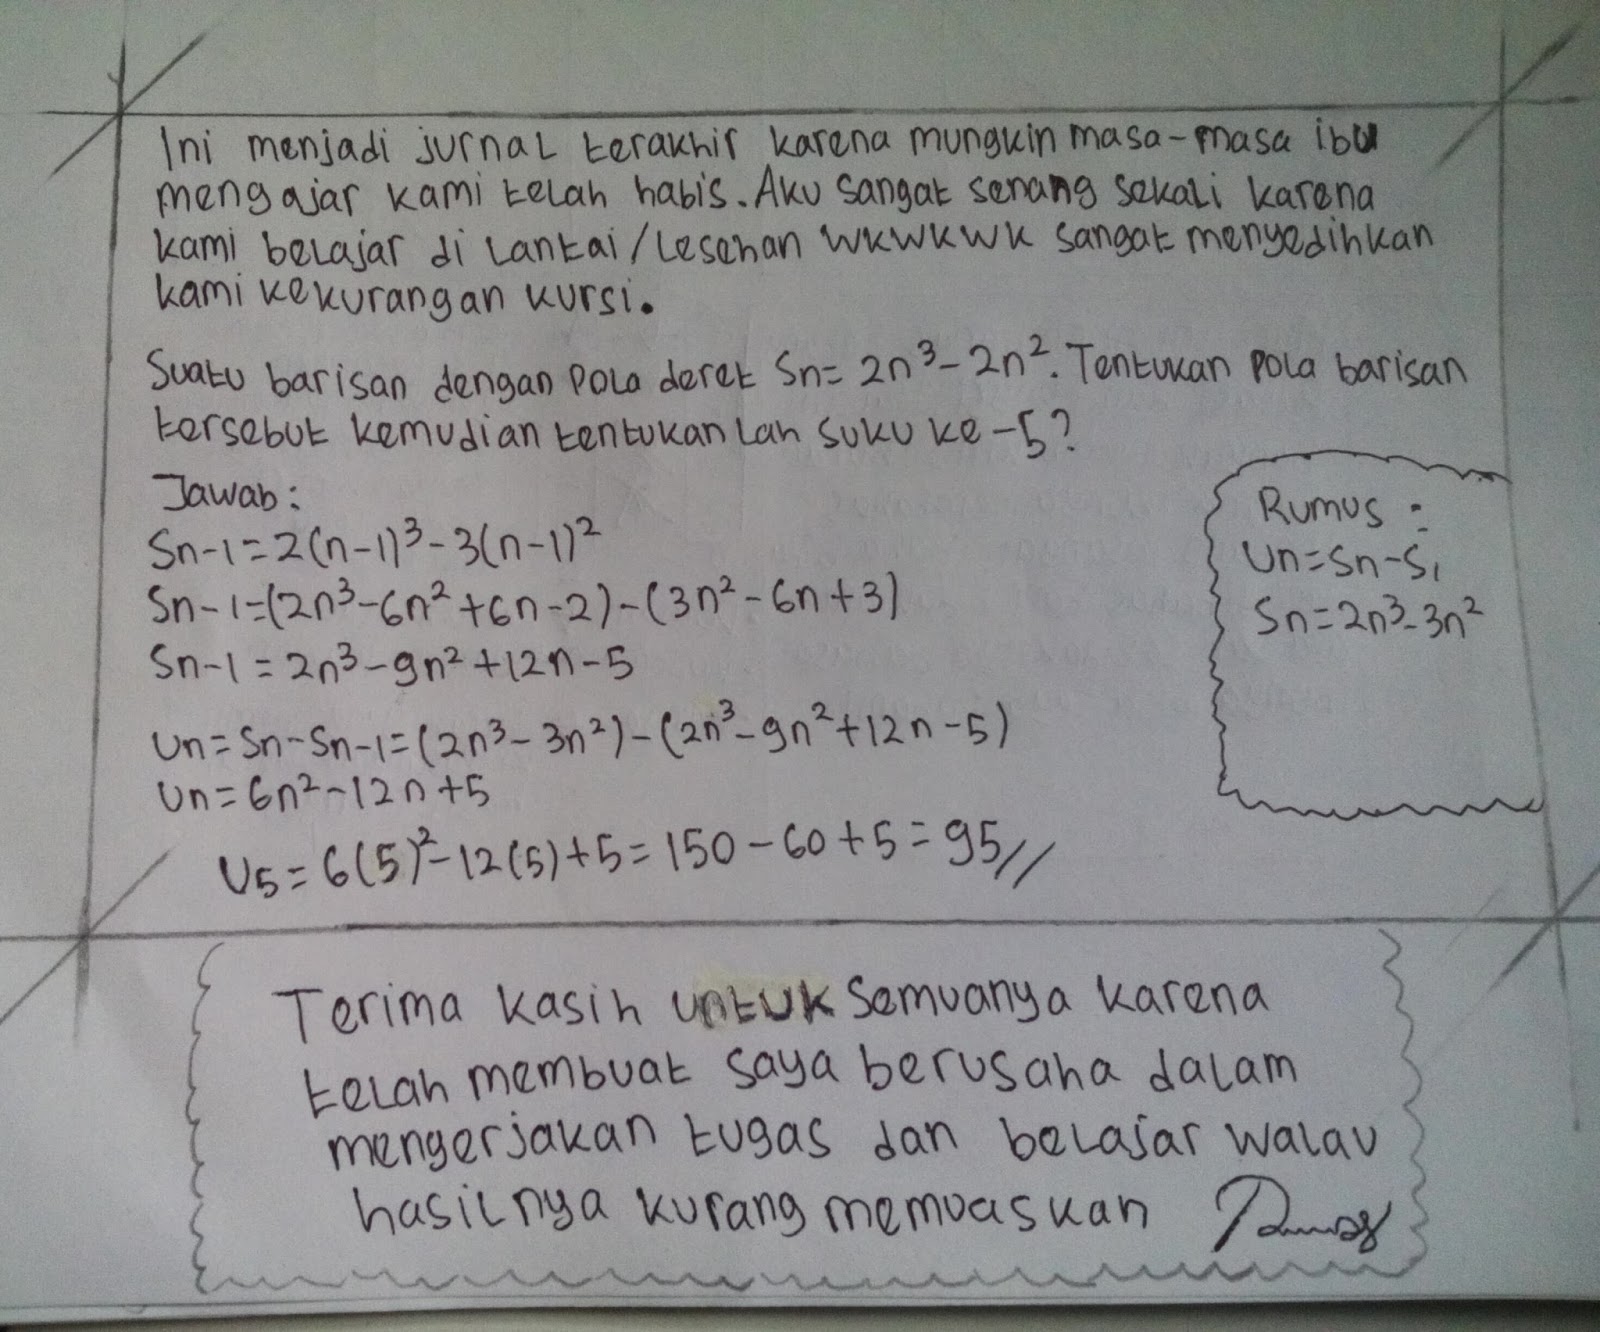 Ini menjadi jurnal terakhir karena mungkin masa-masa ibu
mengajar kami telah habis. Aku sangat senang sekali karena
kami belajar di lantai/lesehan wkwkwk sangat menyedihkan
kami kekurangan kursi.
Suatu barisan dengan pola deret Sn=2n³-2n². Tentukan pola barisan
tersebut kemudian tentukanlah suku ke-5?
Jawab:
Sn-1=2(n-1)³-3(n-1)²
Sn-1=(2n³-6n²+6n-2)-(3n²-6n+3)
Sn-1=2n³-9n²+12n-5
Un=Sn-Sn-1=(2n³-3n²)-(2n³-9n²+12n-5)
Un=6n²-12n+5
U5=6(5)²-12(5)+5=150-60+5=95//
Rumus :
Un=Sn-S₁
Sn=2n³-3n²
Terima kasih untuk semuanya karena
telah membuat saya berusaha dalam
mengerjakan tugas dan belajar walau
hasilnya kurang memuaskan